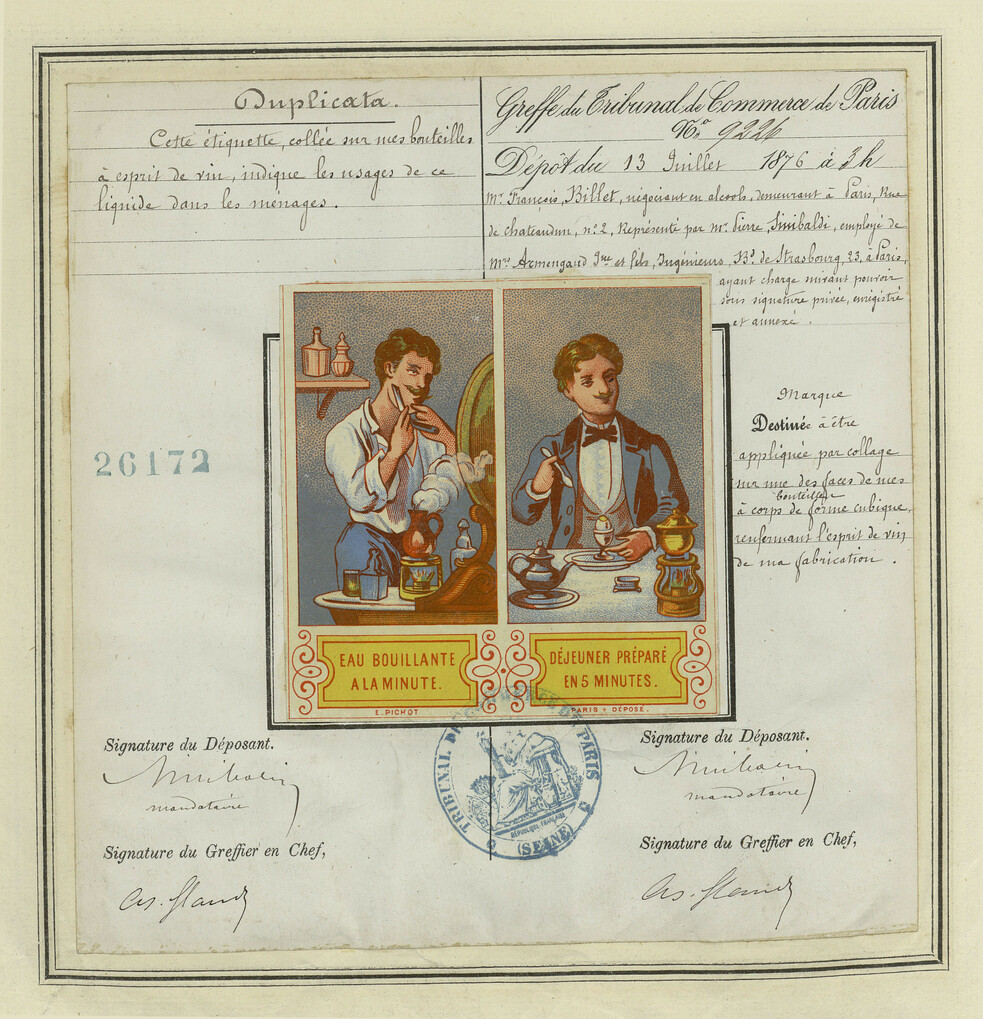 Duplicata.
Cette étiquette, collée sur mes bouteilles
à esprit de vin, indique les usages de ce
liquide dans les ménages.
Greffe du Tribunal de Commerce de Paris
No. 9226
Dépôt du 13 Juillet 1876 à 3h
Mr. François Billet, négociant en alcools, demeurant à Paris, Rue
de chateaudun, no. 2, Représenté par Mr. Pierre Sinibaldi, employé de
Mrs Armengaud Jne et fils, Ingénieurs, Bd. de Strasbourg, 23, à Paris,
ayant charge suivant pouvoir
sous signature privée, enrégistré
et annexé.
26172
Marque
Destinée à être
appliquée par collage
sur une des faces de mes
bouteilles
à corps de forme cubique,
renfermant l'esprit de vin
de ma fabrication.
EAU BOUILLANTE
A LA MINUTE.
DÉJEUNER PRÉPARÉ
EN 5 MINUTES.
E. PICHOT
PARIS + DÉPOSÉ.
TRIBUNAL DE COMMERCE DE PARIS
RÉPUBLIQUE FRANÇAISE
(SEINE)
Signature du Déposant.
Sinibaldi
mandataire
Signature du Greffier en Chef,
Signature du Déposant.
Sinibaldi
mandataire
Signature du Greffier en Chef,